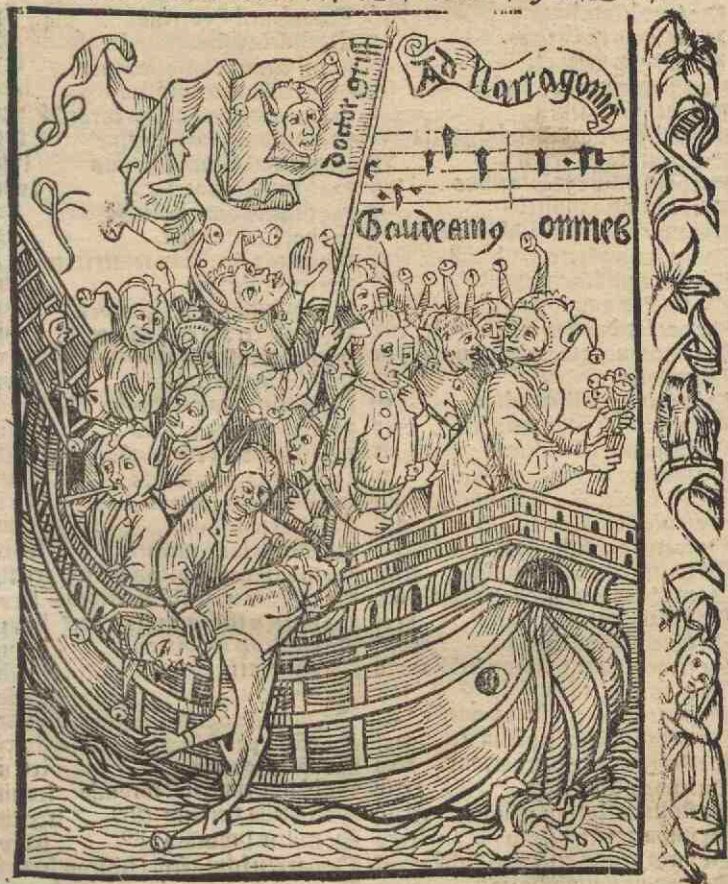 doctor griff
Ad Narragoniā
Gaudeamꝯ omnes